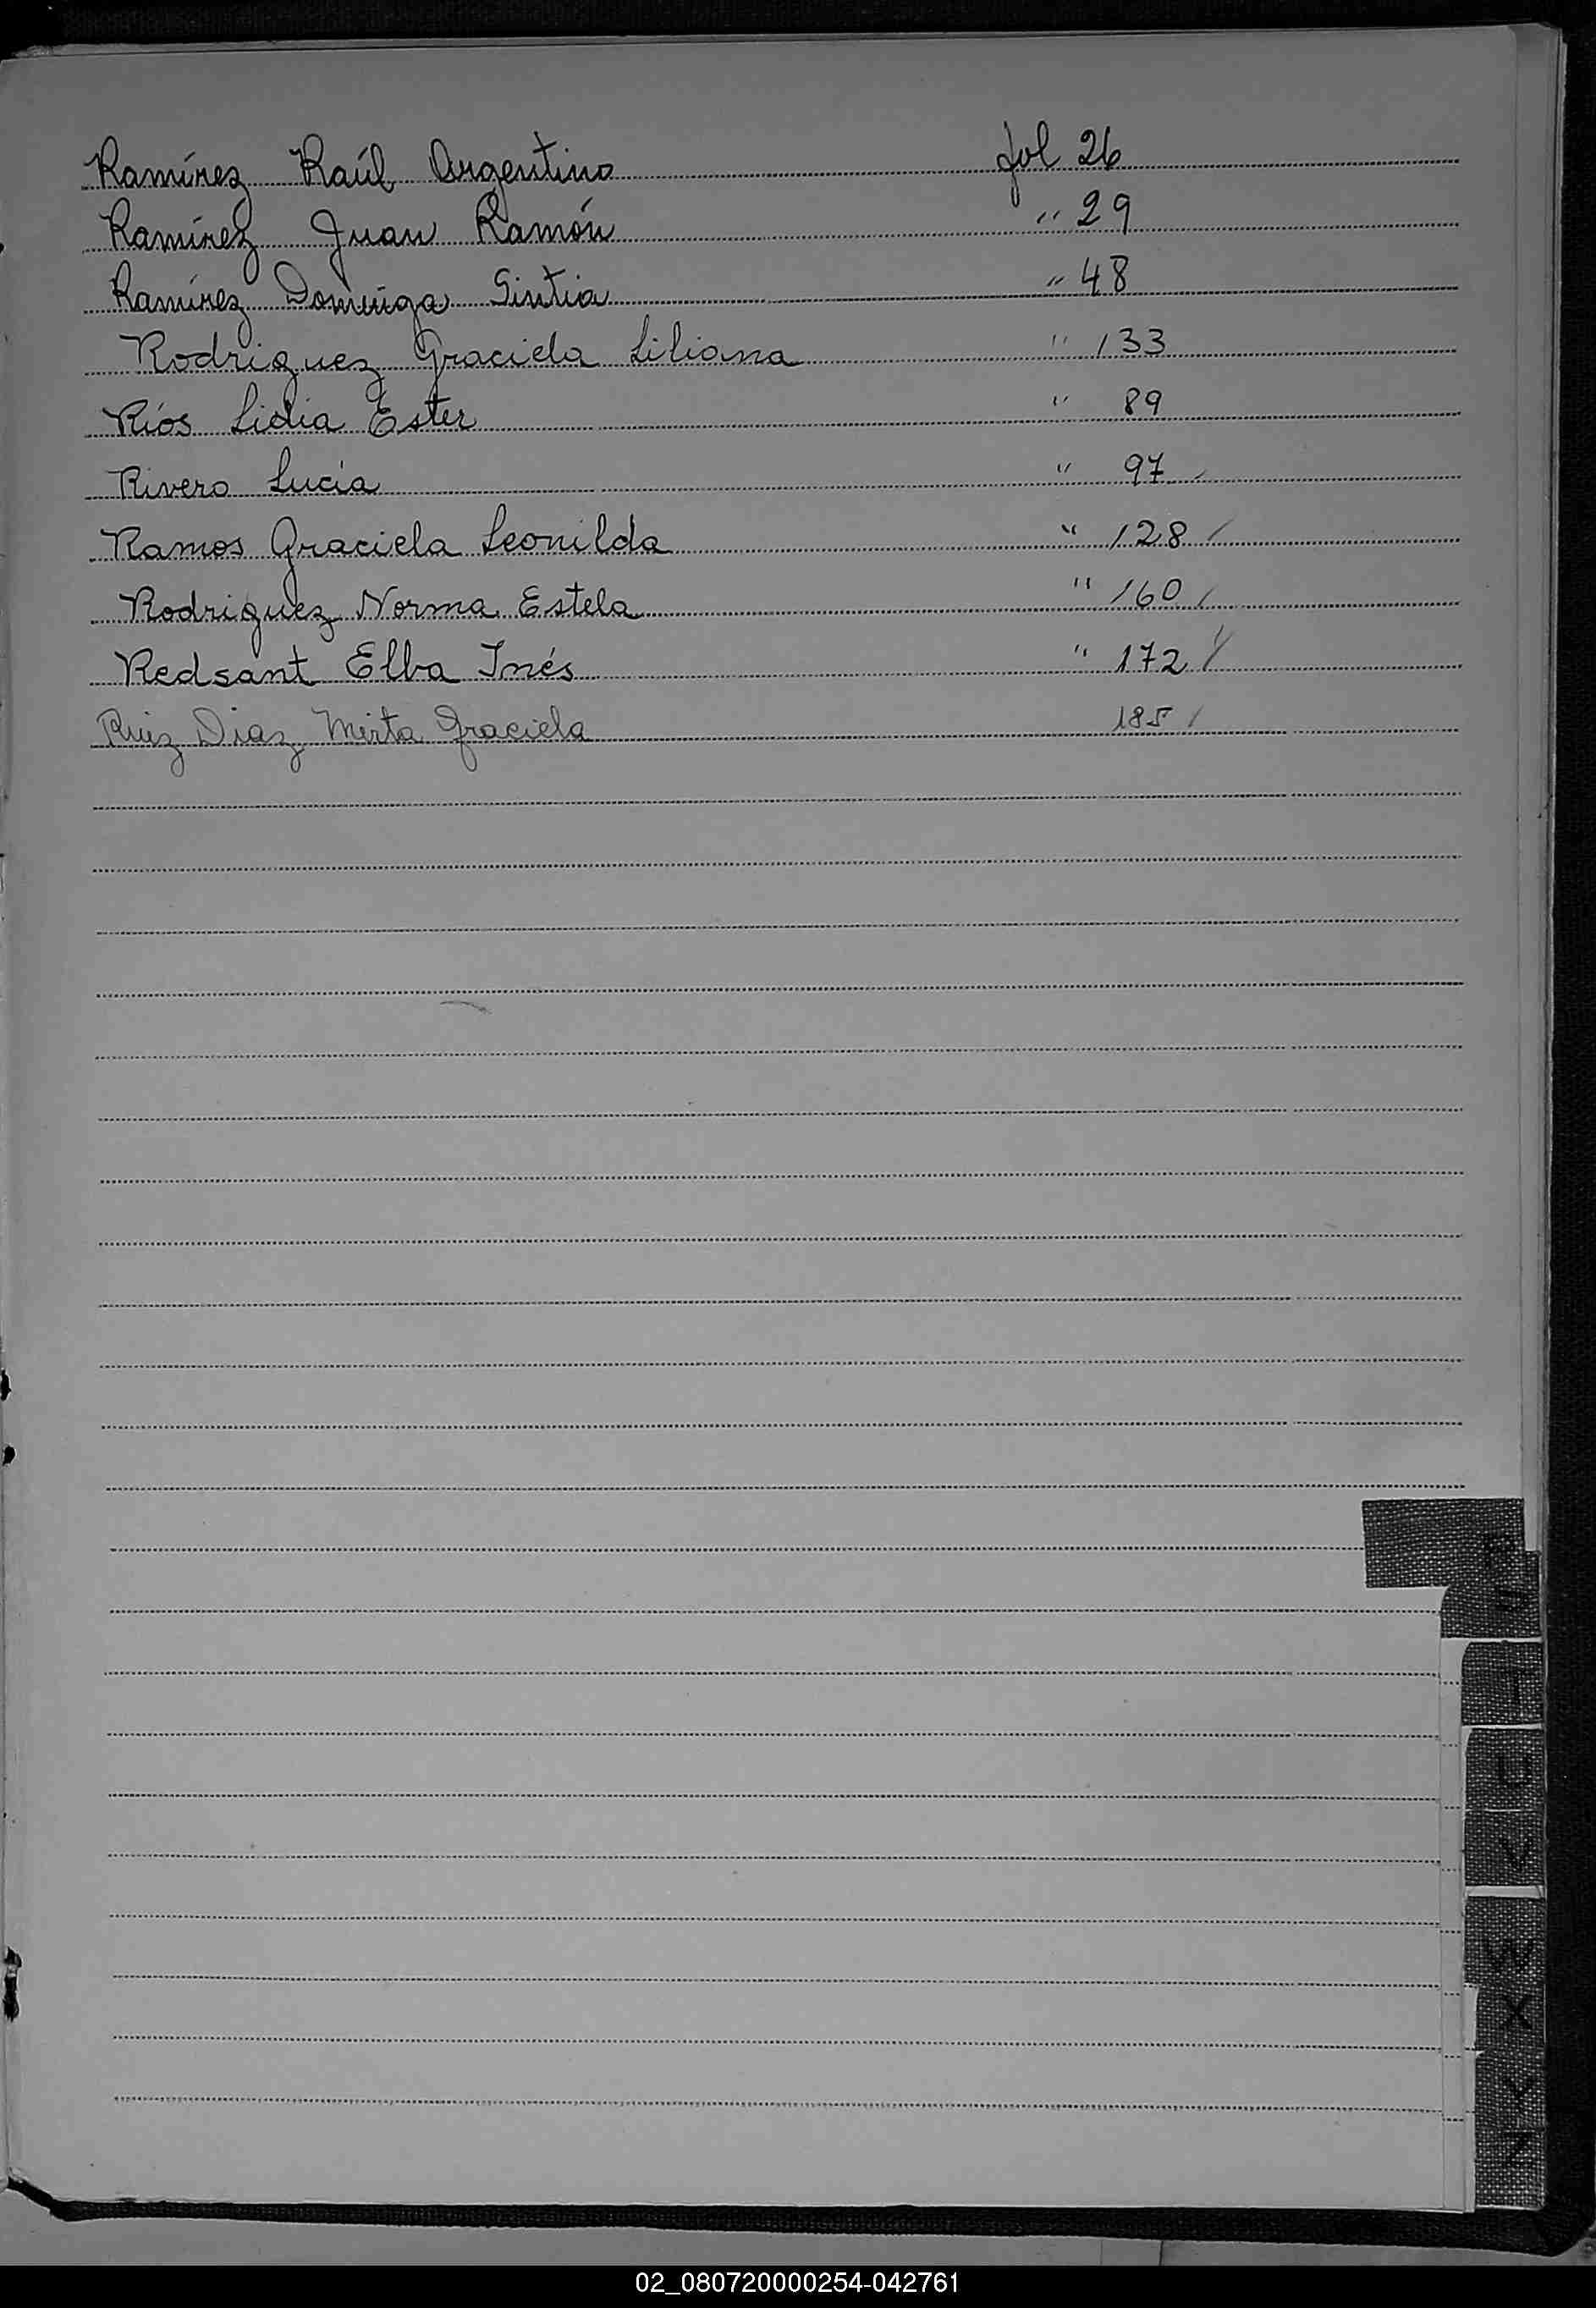 Ramírez Raúl Argentino fol 26
Ramírez Juan Ramón " 29
Ramírez Dominga Sintia " 48
Rodriguez Graciela Liliana " 133
Ríos Lidia Ester " 89
Rivero Lucía " 97
Ramos Graciela Leonilda " 128 /
Rodriguez Norma Estela " 160 /
Redsant Elba Inés " 172 /
Ruiz Diaz Mirta Graciela 185 /
R
S
T
U
V
W
X
Y
Z
02_080720000254-042761